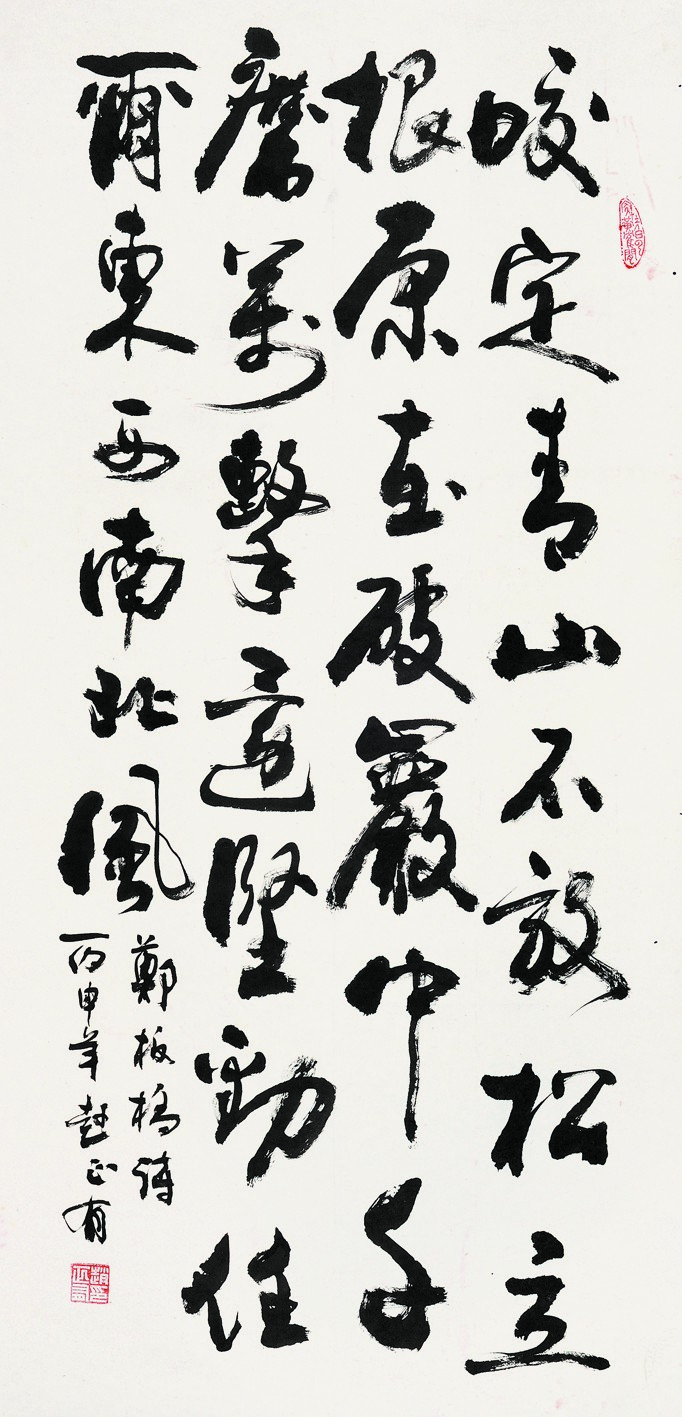 咬定青山不放松立
根原在破巖中千
磨萬擊還堅勁任
爾東西南北風
鄭板橋詩
丙申年趙正有